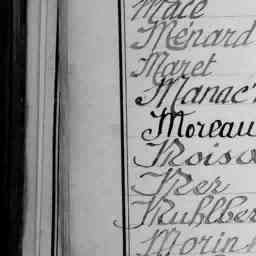 Macé
Ménard
Maret
Manac'
Moreau
Moiso
Mer
Muhlber
Morin